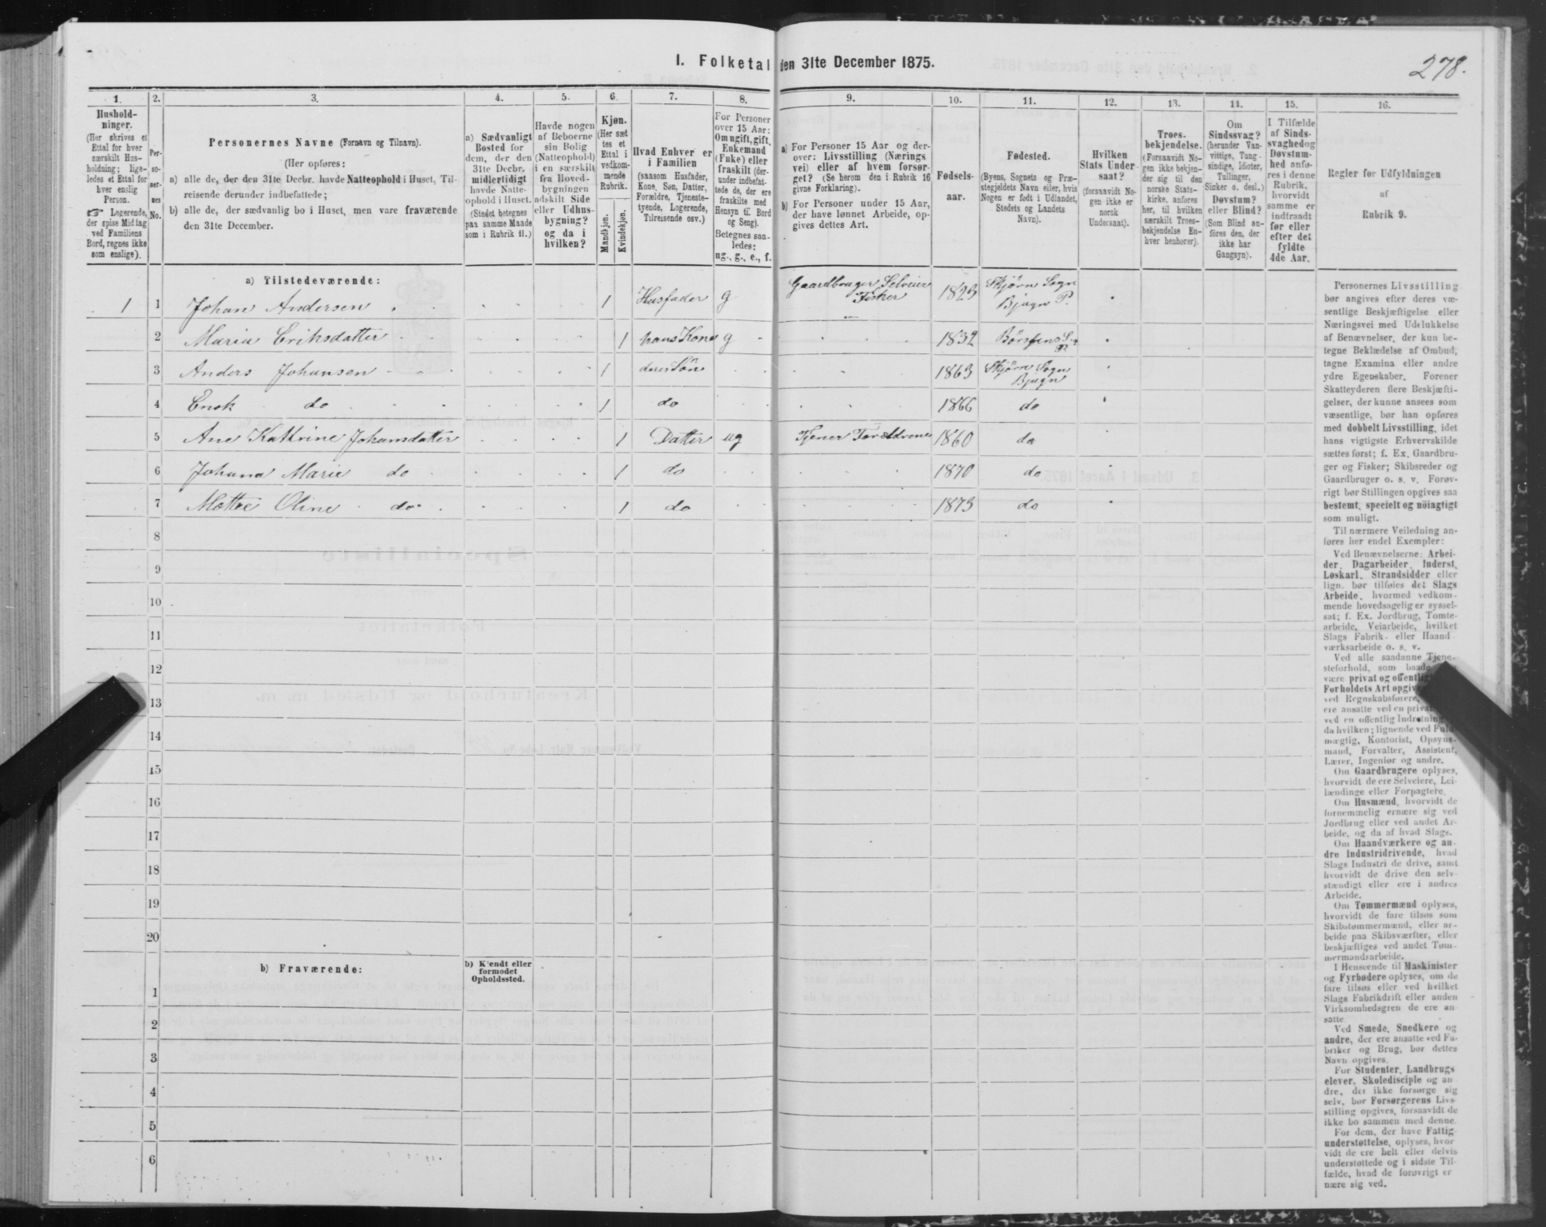 I. Folketal den 31te December 1875.
278.
1. 2. 3. 4. 5. 6. 7. 8. 9. 10. 11. 12. 13. 14. 15. 16.
Hushold-
ninger.
(Her skrives et
Ettal for hver
særskilt Hus-
holdning; lige-
ledes et Ettal for
hver enslig
Person.
☞ Logerende,
der spise Middag
ved Familiens
Bord, regnes ikke
som enslige).
Per-
so-
ner-
nes
No.
Personernes Navne (Fornavn og Tilnavn).
(Her opføres:
a) alle de, der den 31te Decbr. havde Natteophold i Huset, Til-
reisende derunder indbefattede;
b) alle de, der sædvanlig bo i Huset, men vare fraværende
den 31te December.
a) Sædvanligt
Bosted for
dem, der den
31te Decbr.
midlertidigt
havde Natte-
ophold i Huset.
(Stedet betegnes
paa samme Maade
som i Rubrik 11.)
Havde nogen
af Beboerne
sin Bolig
(Natteophold)
i en særskilt
fra Hoved-
bygningen
adskilt Side
eller Udhus-
bygning?
og da i
hvilken?
Kjøn.
(Her sæt
tes et
Ettal i
vedkom-
mende
Rubrik.
Mandkjøn.
Kvindekjøn.
Hvad Enhver er
i Familien
(saasom Husfader,
Kone, Søn, Datter,
Forældre, Tjeneste-
tyende, Logerende,
Tilreisende osv.)
For Personer
over 15 Aar:
Om ugift, gift,
Enkemand
(Enke) eller
fraskilt (der-
under indbefat-
tede de, der ere
fraskilte med
Hensyn til Bord
og Seng).
Betegnes saa-
ledes:
ug., g., e., f.
a) For Personer 15 Aar og der-
over: Livsstilling (Nærings
vei) eller af hvem forsør-
get? (Se herom den i Rubrik 16
givne Forklaring).
b) For Personer under 15 Aar,
der have lønnet Arbeide, op-
gives dettes Art.
Fødsels-
aar.
Fødested.
(Byens, Sognets og Præ-
stegjeldets Navn eller, hvis
Nogen er født i Udlandet,
Stedets og Landets
Navn).
Hvilken
Stats Under
saat?
(forsaavidt No-
gen ikke er
norsk
Undersaat).
Troes-
bekjendelse.
(Forsaavidt No-
gen ikke bekjen-
der sig til den
norske Stats-
kirke, anføres
her, til hvilken
særskilt Troes-
bekjendelse En-
hver henhører).
Om
Sindssvag?
(herunder Van-
vittige, Tung-
sindige, Idioter,
Tullinger,
Sinker o. desl.)
Døvstum?
eller Blind?
(Som Blind an-
føres den, der
ikke har
Gangsyn).
I Tilfælde
af Sinds-
svaghed og
Døvstum-
hed anfø-
res i denne
Rubrik,
hvorvidt
samme er
indtraadt
før eller
efter det
fyldte
4de Aar.
Regler før Udfyldningen
af
Rubrik 9.
a) Tilstedeværende:
1 1 Johan Andersen 1 Husfader g Gaardbruger Selveier Fisker 1823 Skjørn Sogn Bjugn P.
2 Maria Eriksdatter 1 hans Kone g 1832
3 Anders Johansen 1 deres Søn 1863 Skjørn Sogn Bjugn
4 Enok do 1 do 1866 do
5 Ane Kathrine Johansdatter 1 Datter ug Tjener Forældrene 1860 do
6 Johana Marie do 1 do 1870 do
7 Oline do 1 do 1873 do
8
9
10
11
12
13
14
15
16
17
18
19
20
b) Fraværende:
b) Kjendt eller
formodet
Opholdssted.
1
2
3
4
5
6
Personernes Livsstilling
bør angives efter deres væ-
sentlige Beskjæftigelse eller
Næringsvei med Udelukkelse
af Benævnelser, der kun be-
tegne Beklædelse af Ombud,
tagne Examina eller andre
ydre Egenskaber. Forener
Skatteyderen flere Beskjæfti-
gelser, der kunne ansees som
væsentlige, bør han opføres
med dobbelt Livsstilling, idet
hans vigtigste Erhvervskilde
sættes først; f. Ex. Gaardbru-
ger og Fisker; Skibsreder og
Gaardbruger o. s. v. Forøv-
rigt bør Stillingen opgives saa
bestemt, specielt og nöiagtigt
som muligt.
Til nærmere Veiledning an-
føres her endel Exempler:
Ved Benævnelserne: Arbei-
der, Dagarbeider, Inderst,
Løskarl, Strandsidder eller
lign. bør tilføies det Slags
Arbeide, hvormed vedkom-
mende hovedsagelig er syssel-
sat; f. Ex. Jordbrug, Tomte-
arbeide, Veiarbeide, hvilket
Slags Fabrik- eller Haand
værksarbeide o. s. v.
Ved alle saadanne Tjene-
steforhold, som baade
være privat og offentlig
Forholdets Art opgiv
ved Regnskabsførere,
ere ansatte ved en priv
ved en offentlig Indretning
da hvilken; lignende ved Fuld
mægtig, Kontorist, Opsyns-
mand, Forvalter, Assistent,
Lærer, Ingeniør og andre.
Om Gaardbrugere oplyses,
hvorvidt de ere Selveiere, Lei-
lændinge eller Forpagtere.
Om Husmænd, hvorvidt de
fornemmelig ernære sig ved
Jordbrug eller ved andet Ar-
beide, og da af hvad Slags.
Om Haandværkere og an-
dre Industridrivende, hvad
Slags Industri de drive, samt
hvorvidt de drive den selv-
stændigt eller ere i andres
Arbeide.
Om Tømmermænd oplyses,
hvorvidt de fare tilsøs som
Skibstømmermænd, eller ar-
beide paa Skibsværfter, eller
beskjæftiges ved andet Tøm-
mermandsarbeide.
I Henseende til Maskinister
og Fyrbødere oplyses, om de
fare tilsøs eller ved hvilket
Slags Fabrikdrift eller anden
Virksomhedsgren de ere an-
satte.
Ved Smede, Snedkere og
andre, der ere ansatte ved Fa-
briker og Brug, bør dettes
Navn opgives.
For Studenter, Landbrugs
elever, Skoledisciple og an
dre, der ikke forsørge sig
selv, bør Forsørgerens Livs-
stilling opgives, forsaavidt de
ikke bo sammen med denne.
For dem, der have Fattig
understøttelse, oplyses, hvor
vidt de ere helt eller delvis
understøttede og i sidste Til-
fælde, hvad de forøvrigt er
nære sig ved.